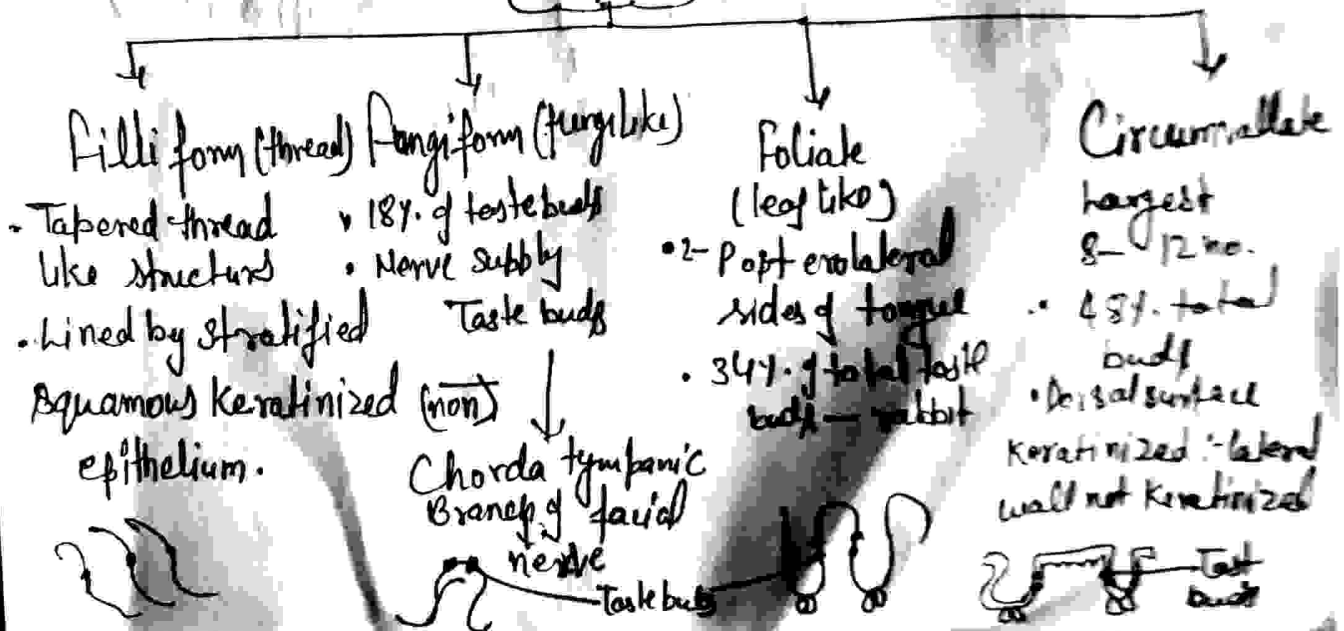 Filliform (thread)
• Tapered thread
like structures
• Lined by stratified
squamous keratinized (non)
epithelium.
Fungiform (fungilike)
• 18% of taste buds
• Nerve supply
Taste buds
Chorda tympanic
Branch of facial
nerve
Taste buds
Foliate
(leaf like)
• 2- Posterolateral
sides of tongue
• 34% of total taste
buds — rabbit
Circumvallate
Largest
8-12 no.
• 48% total
buds
• Dorsal surface
Keratinized :- lateral
wall not Keratinized
Tast
buds